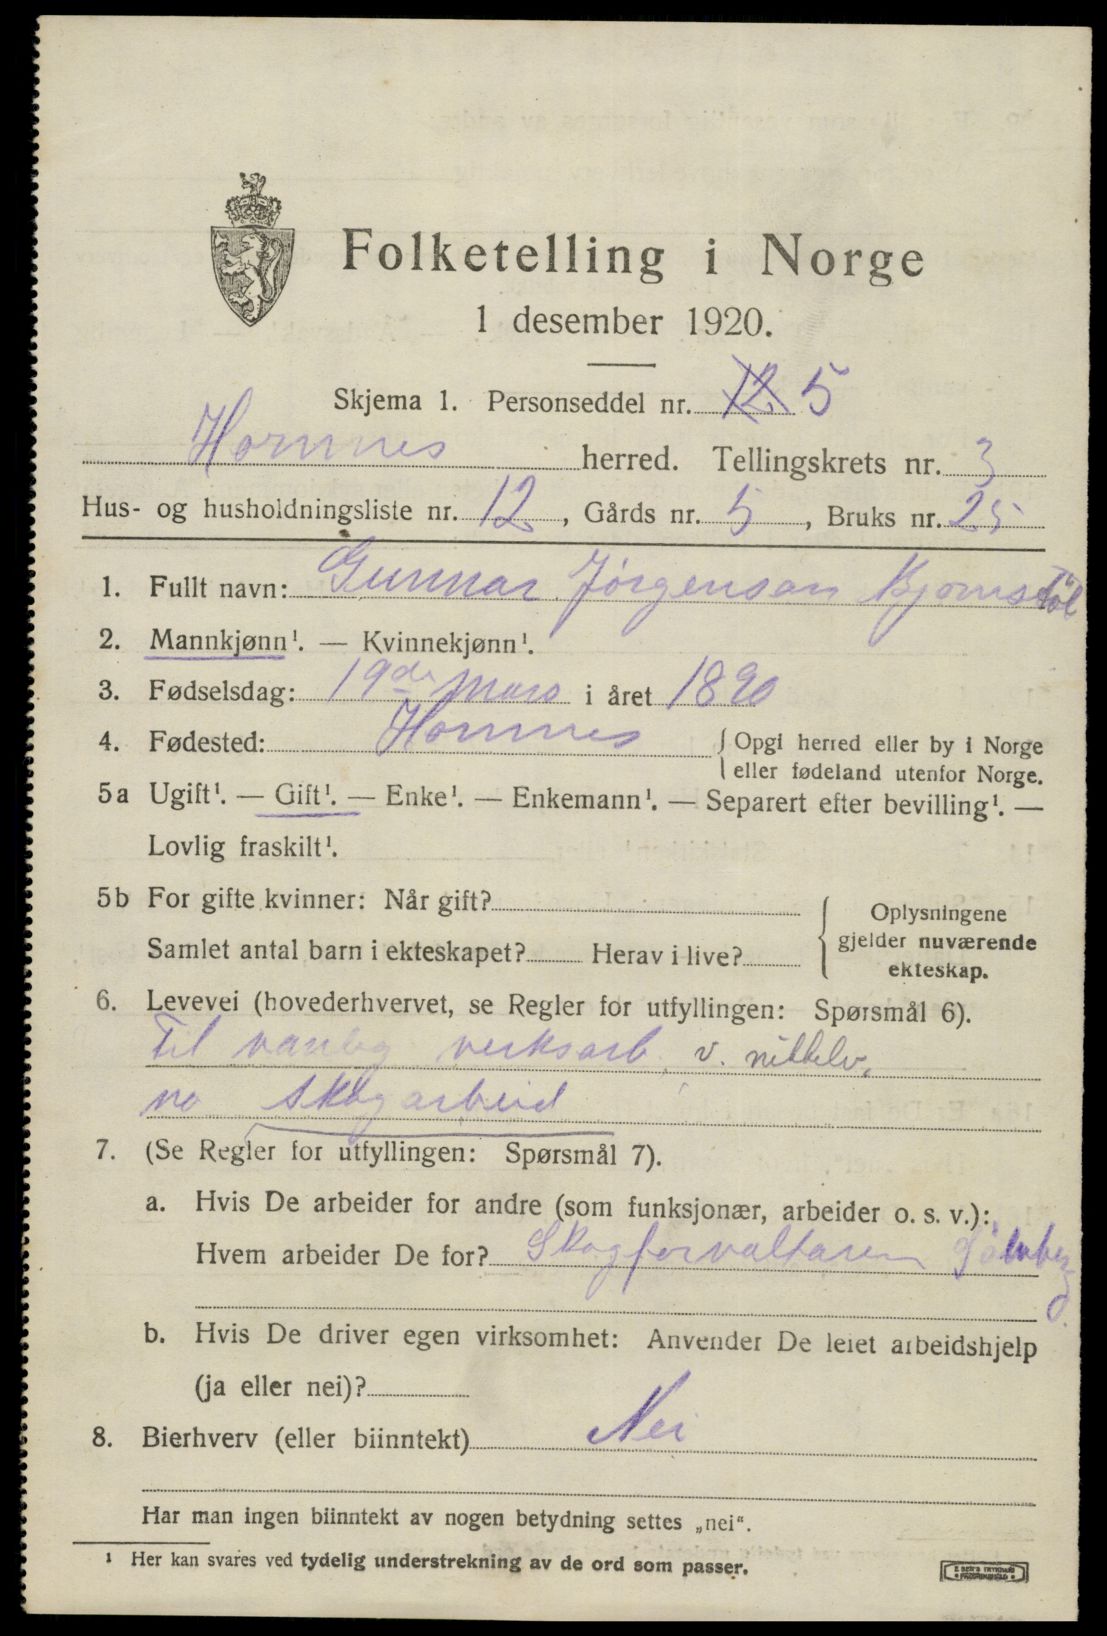 Folketelling i Norge
1 desember 1920.
Skjema 1. Personseddel nr. 12 5
Hornnes herred. Tellingskrets nr. 3
Hus- og husholdningsliste nr. 12, Gårds nr. 5, Bruks nr. 25
1. Fullt navn: Gunnar Jørgensøn
2. Mannkjønn¹. — Kvinnekjønn¹.
3. Fødselsdag: 19de Mars i året 1890
4. Fødested: Hornnes { Opgi herred eller by i Norge
eller fødeland utenfor Norge.
5a Ugift¹. — Gift¹. — Enke¹. — Enkemann¹. — Separert efter bevilling¹. —
Lovlig fraskilt¹.
5b For gifte kvinner: Når gift?
Samlet antal barn i ekteskapet? Herav i live?
{ Oplysningene
gjelder nuværende
ekteskap.
6. Levevei (hovederhvervet, se Regler for utfyllingen: Spørsmål 6).
Til vanleg verksarb. v. nikkelv.
no skogarbeid
7. (Se Regler for utfyllingen: Spørsmål 7).
a. Hvis De arbeider for andre (som funksjonær, arbeider o. s. v.):
Hvem arbeider De for? Skogforvaltaren
b. Hvis De driver egen virksomhet: Anvender De leiet arbeidshjelp
(ja eller nei)?
8. Bierhverv (eller biinntekt) Nei
Har man ingen biinntekt av nogen betydning settes „nei“.
¹ Her kan svares ved tydelig understrekning av de ord som passer.